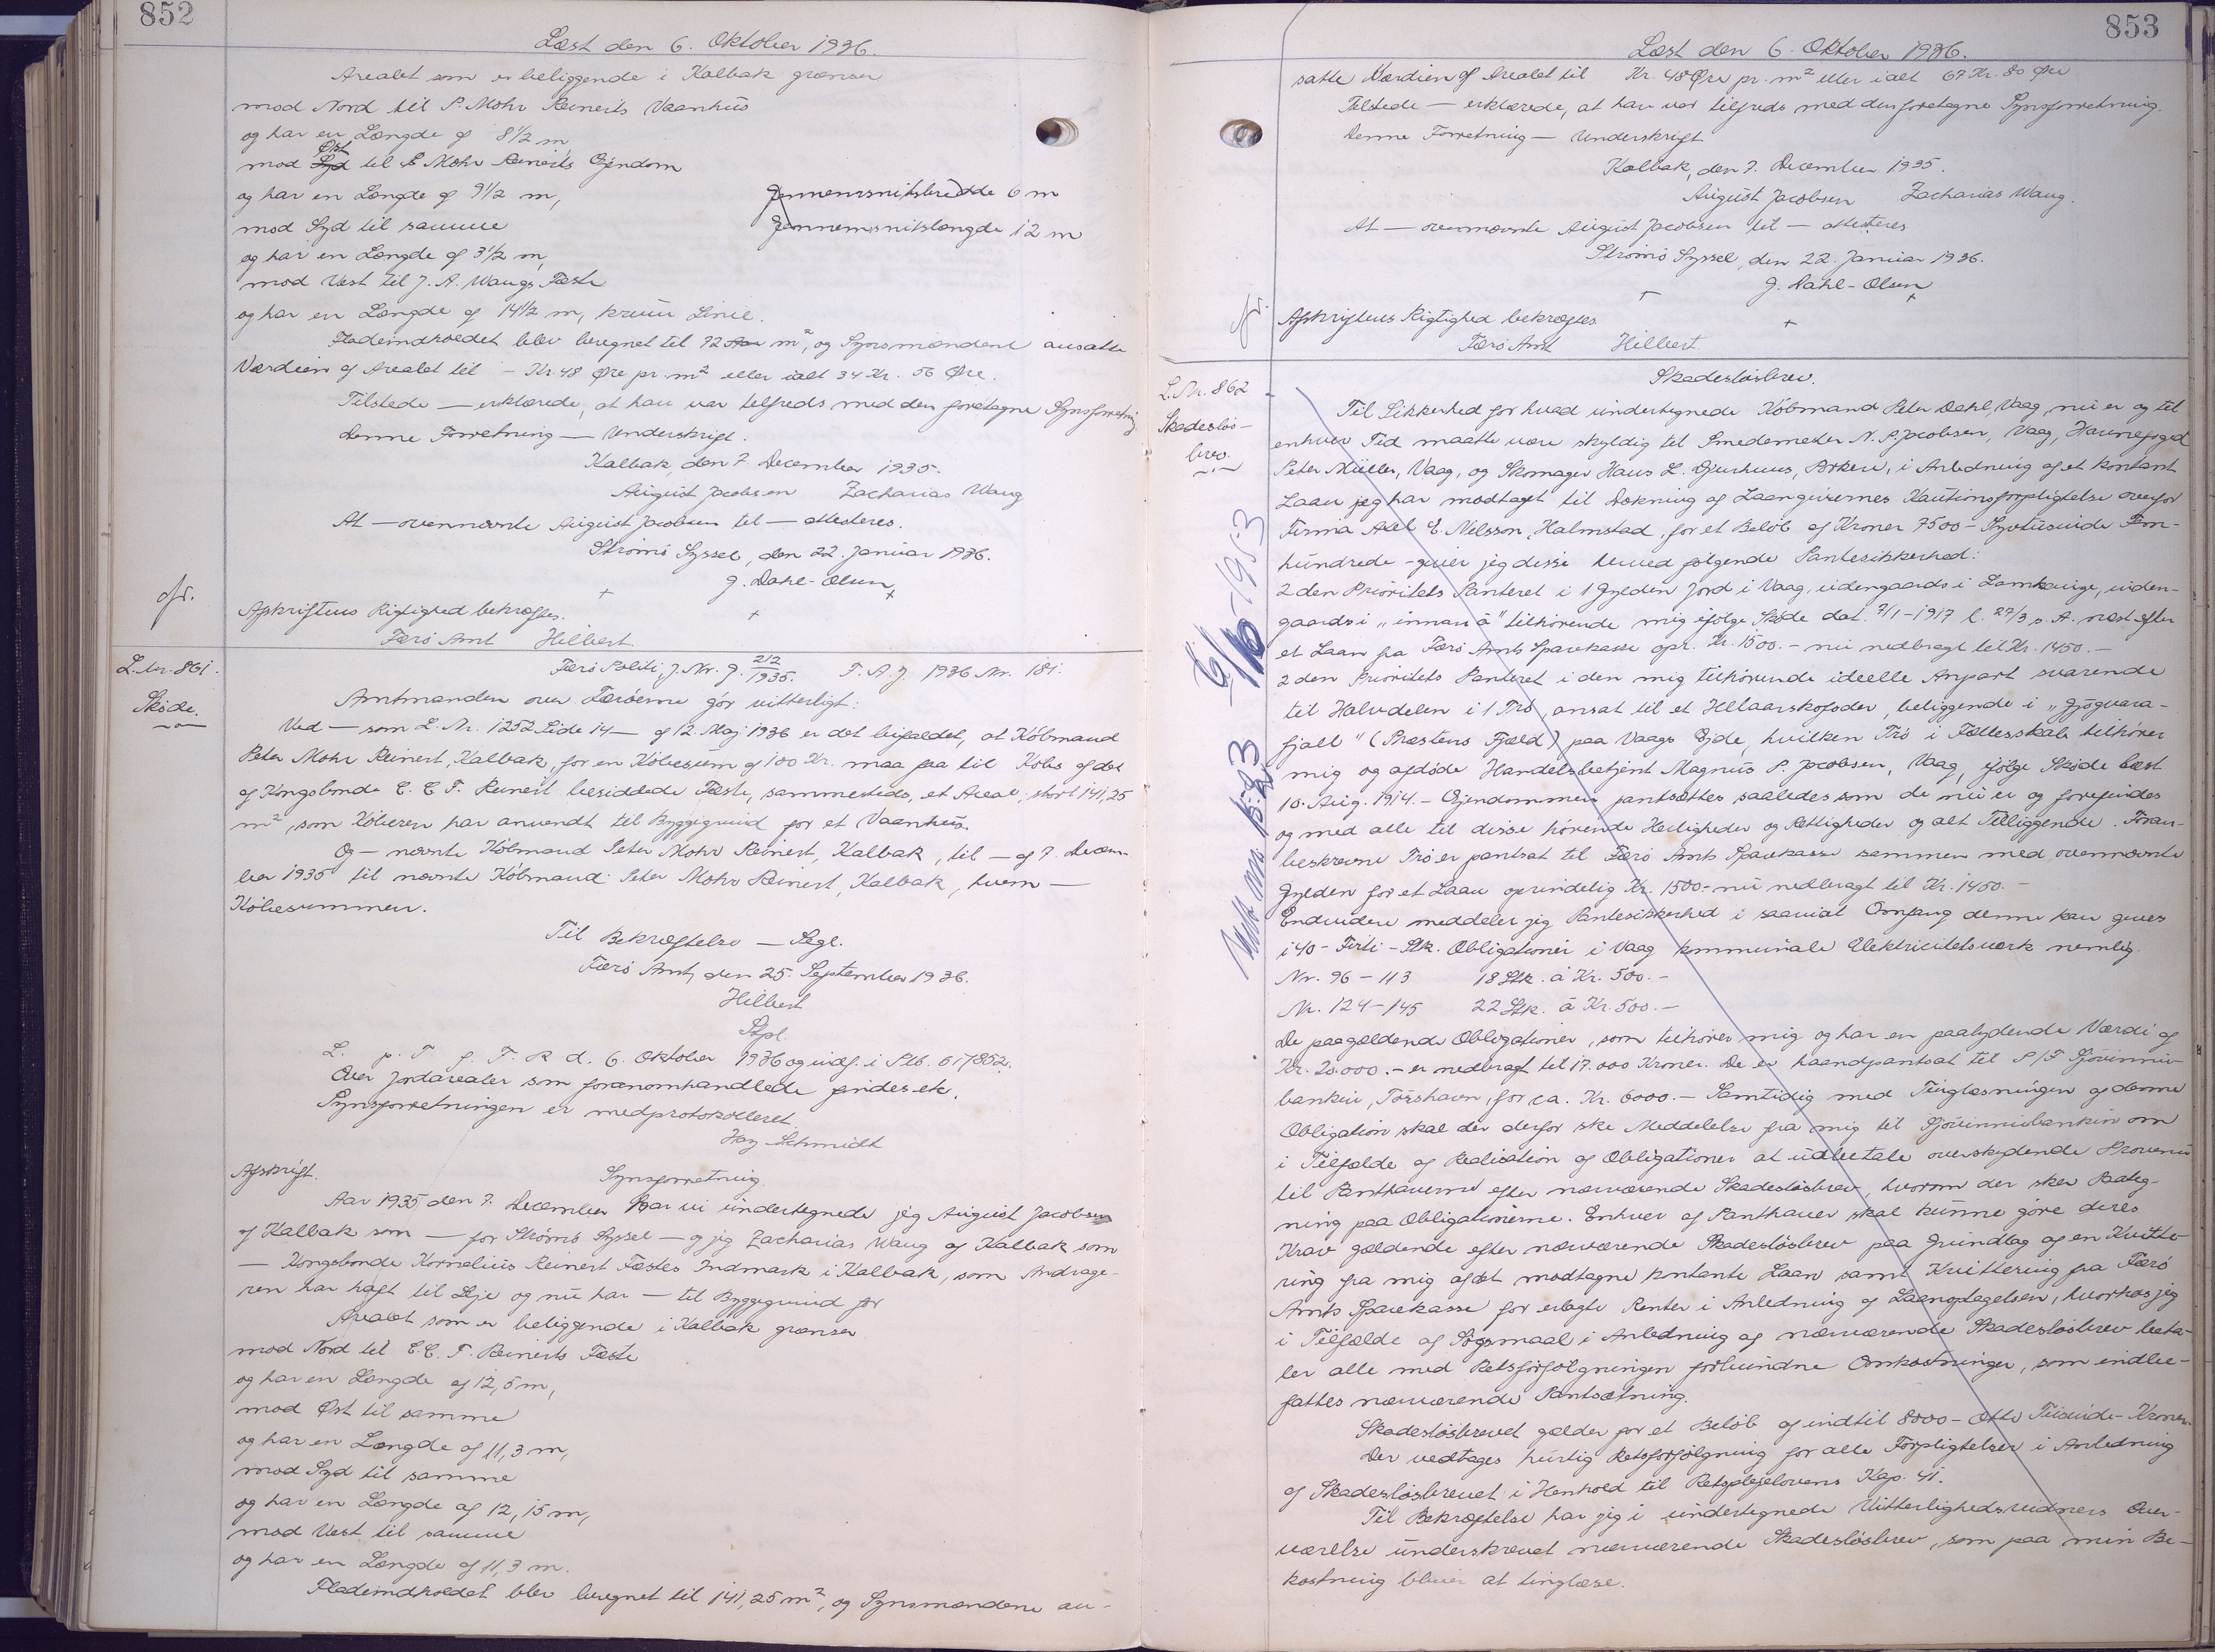 852
Læst den 6. Oktober 1936.
Arealet som er beliggende i Kalbak grænser
mod Nord til P. Mohr Reinerts Vaanhus
og har en Længde af 8 1/2 m
mod Øst til P. Mohr Reinerts Ejendom
og har en Længde af 9 1/2 m, Gennemsnitsbredde 6 m
mod Syd til samme Gennemsnitslængde 12 m
og har en Længde af 3 1/2 m,
mod Vest til J. A. Waags Fæste
og har en Længde af 14 1/2 m, krum Linie.
Fladeindholdet blev beregnet til 72 m², og Synsmændene ansatte
Værdien af Arealet til - Kr. 48 Øre pr. m² eller ialt 34 Kr. 56 Øre.
Tilstede — erklærede, at han var tilfreds med den foretagne Synsforretning.
Denne Forretning — Underskrift.
Kalbak, den 7. December 1935.
August Jacobsen Zacharias Waag
At — ovennævnte August Jacobsen til — attesteres.
Strømø Syssel, den 22. Januar 1936.
J. Dahl-Olsen
Afskriftens Rigtighed bekræftes.
Færø Amt Hilbert
L. Nr. 861.
Skøde.
Færø Politi J. Nr. J. 212/1935. F. A. J. 1936 Nr. 181.
Amtmanden over Færøerne gør vitterligt:
Ved — som L. Nr. 1252 Side 14 — af 12. Maj 1936 er det bifaldet, at Købmand
Peter Mohr Reinert, Kalbak, for en Købesum af 100 Kr. maa faa til Købs af det
af Kongsbonde C. C. F. Reinert besiddede Fæste, sammesteds, et Areal, stort 141,25
m², som Køberen har anvendt til Byggegrund for et Vaanhus.
Og — nævnte Købmand Peter Mohr Reinert, Kalbak, til — af 7. Decem-
ber 1935 til nævnte Købmand Peter Mohr Reinert, Kalbak, hvem —
Købesummen.
Til Bekræftelse — Segl.
Færø Amt, den 25. September 1936.
Hilbert
Stpl.
L. p. T f. F. R d. 6. Oktober 1936 og indf. i Plb. 6 i 7852.
Over Jordarealer som forannomhandlede findes ek.
Synsforretningen er medprotokolleret.
Hey Schmidt
Afskrift. Synsforretning
Aar 1935, den 7. December har vi undertegnede jeg August Jacobsen
af Kalbak som — for Strømø Syssel — og jeg Zacharias Waag af Kalbak som
— Kongsbonde Kornelius Reinert Fæstes Indmark i Kalbak, som Andrage-
ren har haft til Leje og nu har — til Byggegrund for
Arealet som er beliggende i Kalbak grænser
mod Nord til C. C. F. Reinerts Fæste
og har en Længde af 12,5 m,
mod Øst til samme
og har en Længde af 11,3 m,
mod Syd til samme
og har en Længde af 12,15 m,
mod Vest til samme
og har en Længde af 11,3 m.
Fladeindholdet blev beregnet til 141,25 m², og Synsmændene an-
853
Læst den 6. Oktober 1936.
satte Værdien af Arealet til Kr. 48 Øre pr. m² eller ialt 67 Kr. 80 Øre
Tilstede — erklærede, at han var tilfreds med den foretagne Synsforretning.
Denne Forretning — Underskrift
Kalbak, den 7. December 1935.
August Jacobsen Zacharias Waag.
At — ovennævnte August Jacobsen til — attesteres
Strømø Syssel, den 22. Januar 1936.
J. Dahl-Olsen
Afskriftens Rigtighed bekræftes
Færø Amt Hilbert
L. Nr. 862
Skadesløs-
brev.
Skadesløsbrev.
Til Sikkerhed for hvad undertegnede Købmand Peter Dahl, Vaag, nu er og til
enhver Tid maatte være skyldig til Smedemester N. P. Jacobsen, Vaag, Havnefoged
Peter Müller, Vaag, og Skomager Hans L. Djurhuus, Porkeri, i Anledning af et kontant
Laan jeg har modtaget til Dækning af Laangivernes Kautionsforpligtelse overfor
Firma Axel E. Nilsson, Halmstad, for et Beløb af Kroner 7500 - Syvtusinde Fem-
hundrede - giver jeg disse herved følgende Pantesikkerhed:
2den Prioritets Panteret i 1 Gylden Jord i Vaag, udengaards i Lamhauge, inden-
gaards i "innan á" tilhørende mig ifølge Skøde dat. 7/1-1917 l. 27/3 s. A. næst efter
et Laan fra Færø Amts Sparekasse opr. Kr. 1500.- nu nedbragt til Kr. 1450.-
2den Prioritets Panteret i den mig tilhørende ideelle Anpart svarende
til Halvdelen i 1 Trø, ansat til et Helaarskofoder, beliggende i "Gjógvara-
fjall" (Præstens Fjæld) paa Vaags Ejde, hvilken Trø i Fællesskab tilhører
mig og afdøde Handelsbetjent Magnus P. Jacobsen, Vaag, ifølge Skøde læst
10. Aug. 1914. - Ejendommen pantsættes saaledes som de nu er og forefindes
og med alle til disse hørende Herligheder og Rettigheder og alt Tilliggende. Foran-
beskrevne Trø er pantsat til Færø Amts Sparekasse sammen med ovennævnte
Gylden for et Laan oprindelig Kr. 1500.- nu nedbragt til Kr. 1450.-
Endvidere meddeler jeg Pantesikkerhed i saavidt Omfang denne kan gives
i 40 - Firti - Stk. Obligationer i Vaag kommunale Elektricitetsværk nemlig
Nr. 96 - 113 18 Stk. à Kr. 500.-
Nr. 124 - 145 22 Stk. à Kr. 500.-
De paagældende Obligationer, som tilhører mig og har en paalydende Værdi af
Kr. 20.000.- er nedbragt til 17.000 Kroner. De er haandpantsat til P/F Sjóvinnu-
bankin, Tórshavn, for ca. Kr. 6000.- Samtidig med Tinglæsningen af denne
Obligation skal der derfor ske Meddelelse fra mig til Sjóvinnubankin om
i Tilfælde af Realisation af Obligationer at udbetale overskydende Provenu
til Panthaverne efter nærværende Skadesløsbrev, hvorom der sker Paateg-
ning paa Obligationerne. Enhver af Panthaver skal kunne gøre deres
Krav gældende efter nærværende Skadesløsbrev paa Grundlag af en Kvitte-
ring fra mig af det modtagne kontante Laan samt Kvittering fra Færø
Amts Sparekasse for erlagte Renter i Anledning af Laanoptagelsen, hvorhos jeg
i Tilfælde af Søgsmaal i Anledning af nærværende Skadesløsbrev beta-
ler alle med Retsforfølgningen forbundne Omkostninger, som indbe-
fattes nærværende Pantsætning.
Skadesløsbrevet gælder for et Beløb af indtil 8000 - Otte Tusinde - Kroner.
Der vedtages hurtig Retsforfølgning for alle Forpligtelser i Anledning
af Skadesløsbrevet i Henhold til Retsplejelovens Kap. 41.
Til Bekræftelse har jeg i undertegnede Vitterlighedsvidners Over-
værelse underskrevet nærværende Skadesløsbrev, som paa min Be-
kostning bliver at tinglæse.